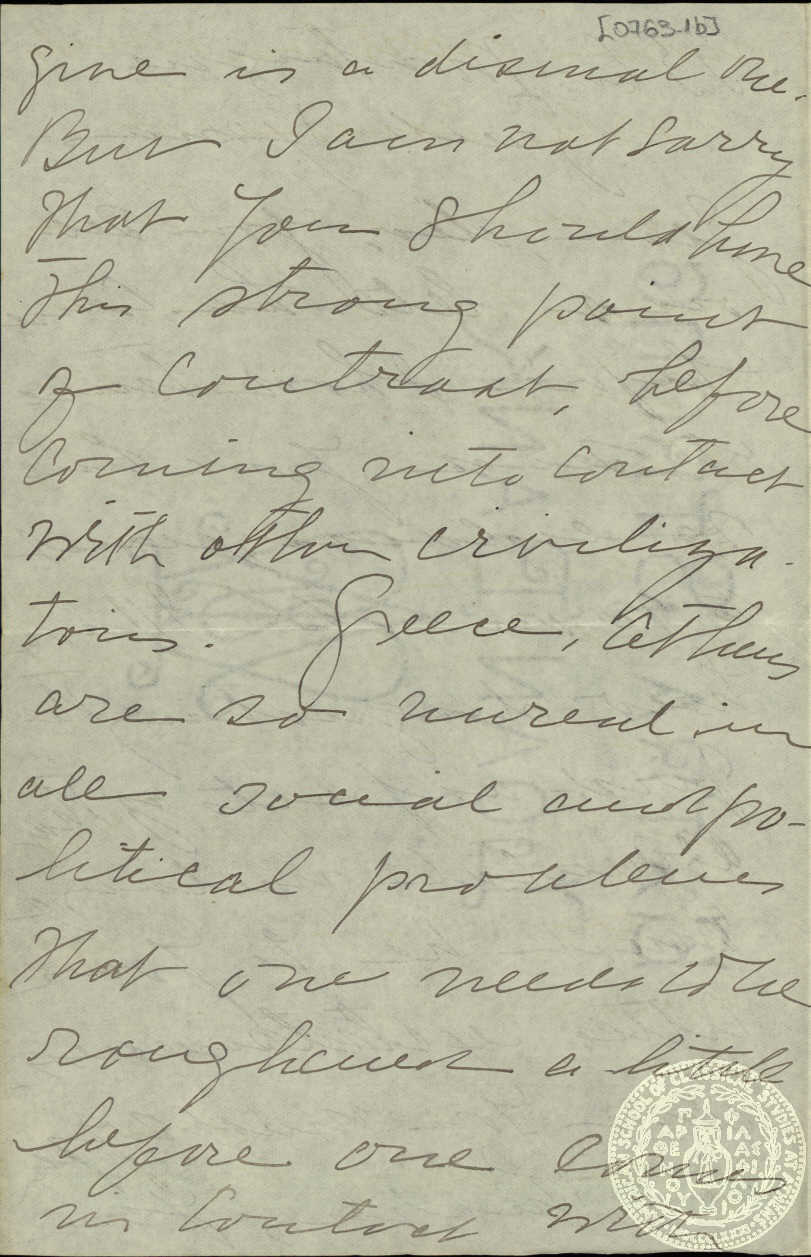 [0763-1b]
give is a dismal one.
But I am not sorry
that you should have
this strong point
of contrast, before
coming into contact
with other civiliza-
tions. Greece, Athens
are so unreal in
all social and po-
litical problems
that one needs to be
roughened a little
before one comes
in contact with